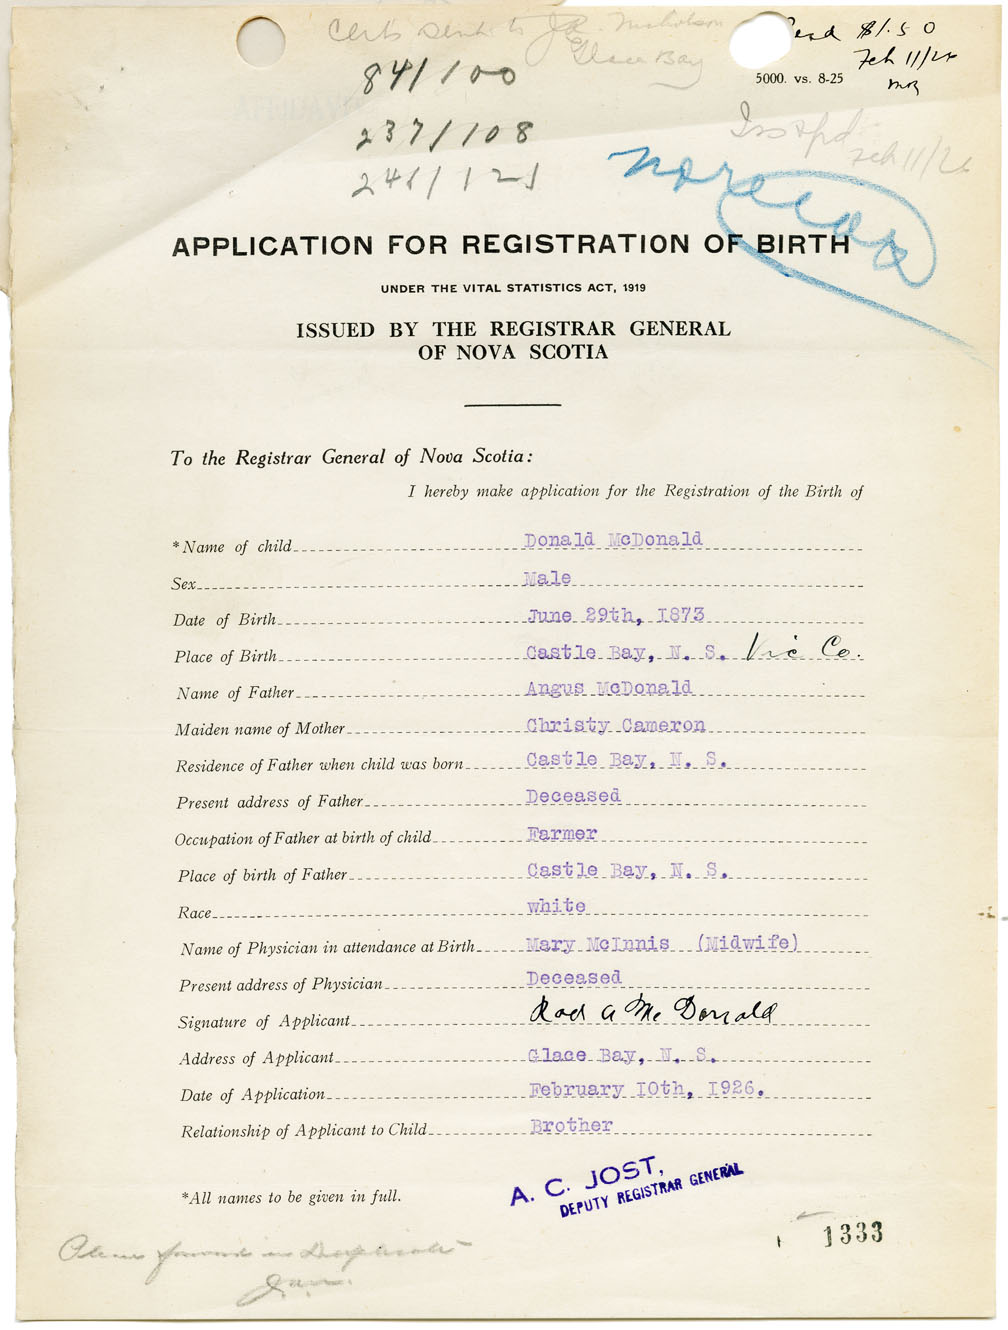 Certs sent to J.A. Nicholson
Glace Bay
$1.50
Feb 11/26
5000. vs. 8-25
841/100
237/108
Feb 11/26
no record
APPLICATION FOR REGISTRATION OF BIRTH
UNDER THE VITAL STATISTICS ACT, 1919
ISSUED BY THE REGISTRAR GENERAL
OF NOVA SCOTIA
To the Registrar General of Nova Scotia:
I hereby make application for the Registration of the Birth of
*Name of child Donald McDonald
Sex Male
Date of Birth June 29th, 1873
Place of Birth Castle Bay, N. S. Vic Co.
Name of Father Angus McDonald
Maiden name of Mother Christy Cameron
Residence of Father when child was born Castle Bay, N. S.
Present address of Father Deceased
Occupation of Father at birth of child Farmer
Place of birth of Father Castle Bay, N. S.
Race white
Name of Physician in attendance at Birth Mary McInnis (Midwife)
Present address of Physician Deceased
Signature of Applicant Rod A McDonald
Address of Applicant Glace Bay, N. S.
Date of Application February 10th, 1926.
Relationship of Applicant to Child Brother
*All names to be given in full.
A. C. JOST,
DEPUTY REGISTRAR GENERAL
1333
Please forward in Duplicate